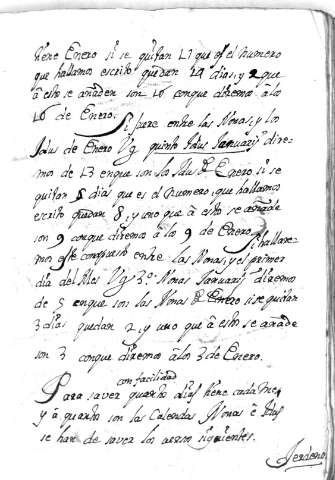 tiene Enero si se quitan 17 que es el numero
que hallamos escrito quedan 14 dias, y 2 que
a esto se añaden son 16 conque diremos â los
16 de Enero.
Si fuere entre las Nonas, y los
Idus de Enero Vg quinto Idus Januarij dire-
mos de 13 en que son los Idus de Enero si se
quitan 5 dias que es el numero, que hallamos
escrito quedan 8, y uno que â esto se añade
son 9 conque diremos â los 9 de Enero. Si hallare-
mos este compuesto entre las Nonas, y el primer
dia del Mes Vg 3º Nonas Januarij diremo
de 5 en que son las Nonas de Enero si se quitan
3 dias quedan 2, y uno que â esto se añade
son 3 conque diremos â los 3 de Enero.
con facilidad
Para saver quantos dias tiene cada Mes
y â quantos son las Calendas Nonas e Idus
se han de saver los versos siguientes.